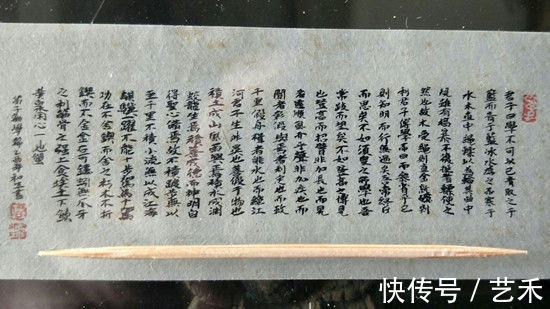 君子曰學不可以已青取之于
藍而青于藍冰水為之而寒于
水木直中繩輮以為輪其曲中
規雖有槁暴不復挺者輮使之
然也故木受繩則直金就礪則
利君子博學而日參省乎己
則知明而行無過矣吾嘗終日
而思矣不如須臾之所學也吾
嘗跂而望矣不如登高之博見
也登高而招臂非加長也而見
者遠順風而呼聲非加疾也而
聞者彰假輿馬者非利足也而致
千里假舟楫者非能水也而絕江
河君子生非異也善假于物也
積土成山風雨興焉積水成淵
蛟龍生焉積善成德而神明自
得聖心備焉故不積蹞步無以
至千里不積小流無以成江海
騏驥一躍不能十步駑馬十駕
功在不舍鍥而舍之朽木不折
鍥而不舍金石可鏤蚓無爪牙
之利筋骨之強上食埃土下飲
黃泉用心一也蟹
荀子勸學
快传号／艺禾